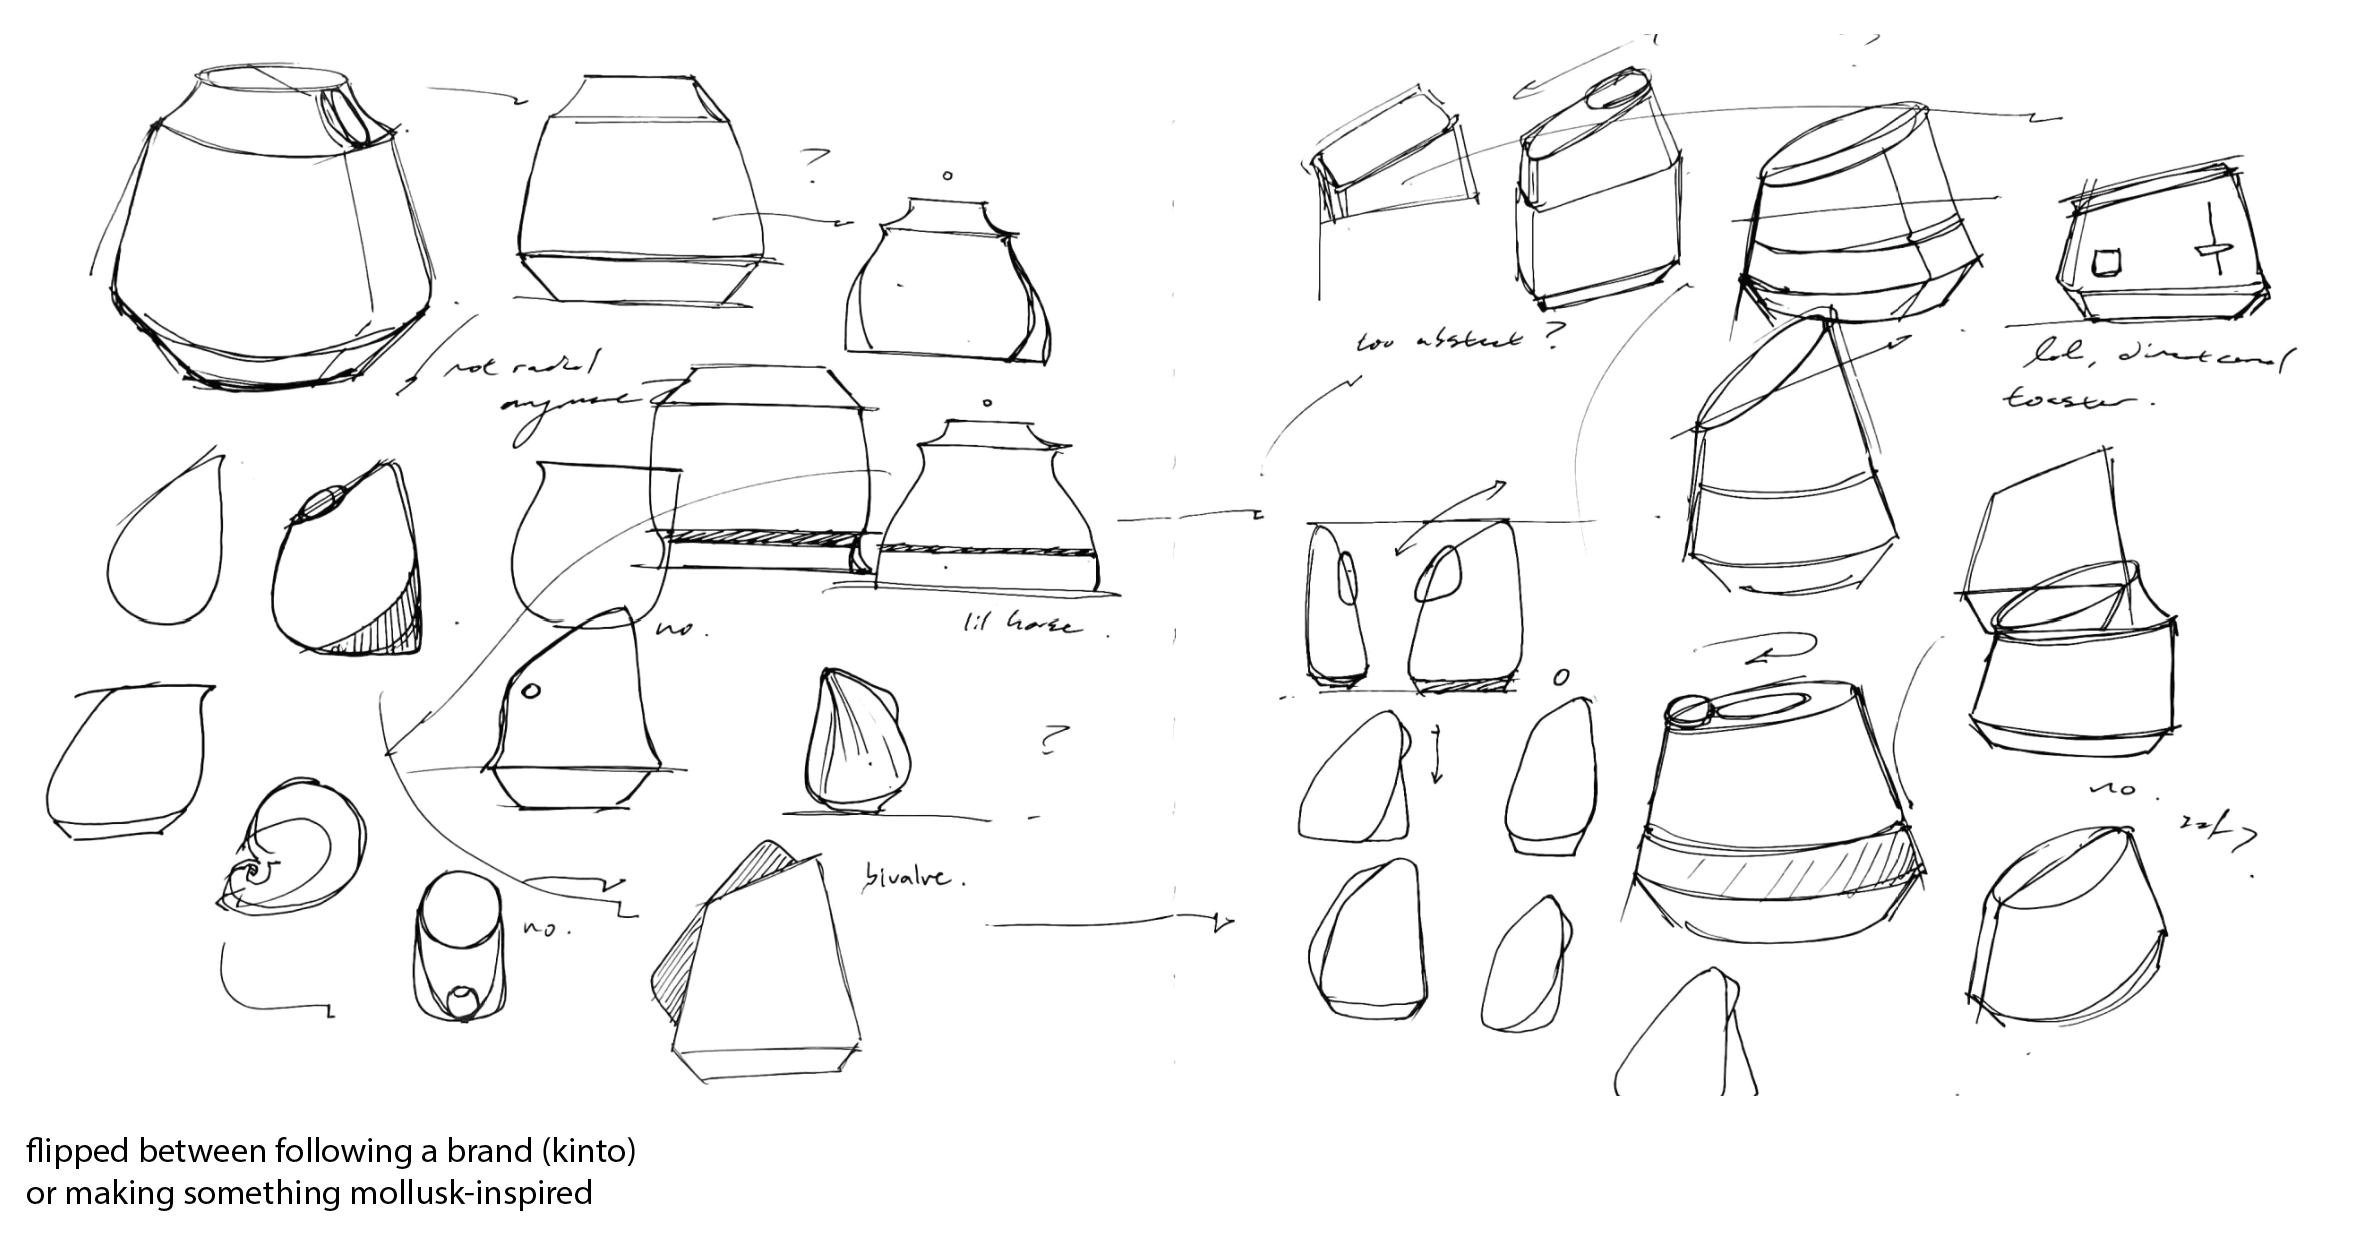 ?
not radial
anymore
no.
lil house.
?
bivalve.
no.
too abstract?
lol, directional
toaster.
no.
flipped between following a brand (kinto)
or making something mollusk-inspired